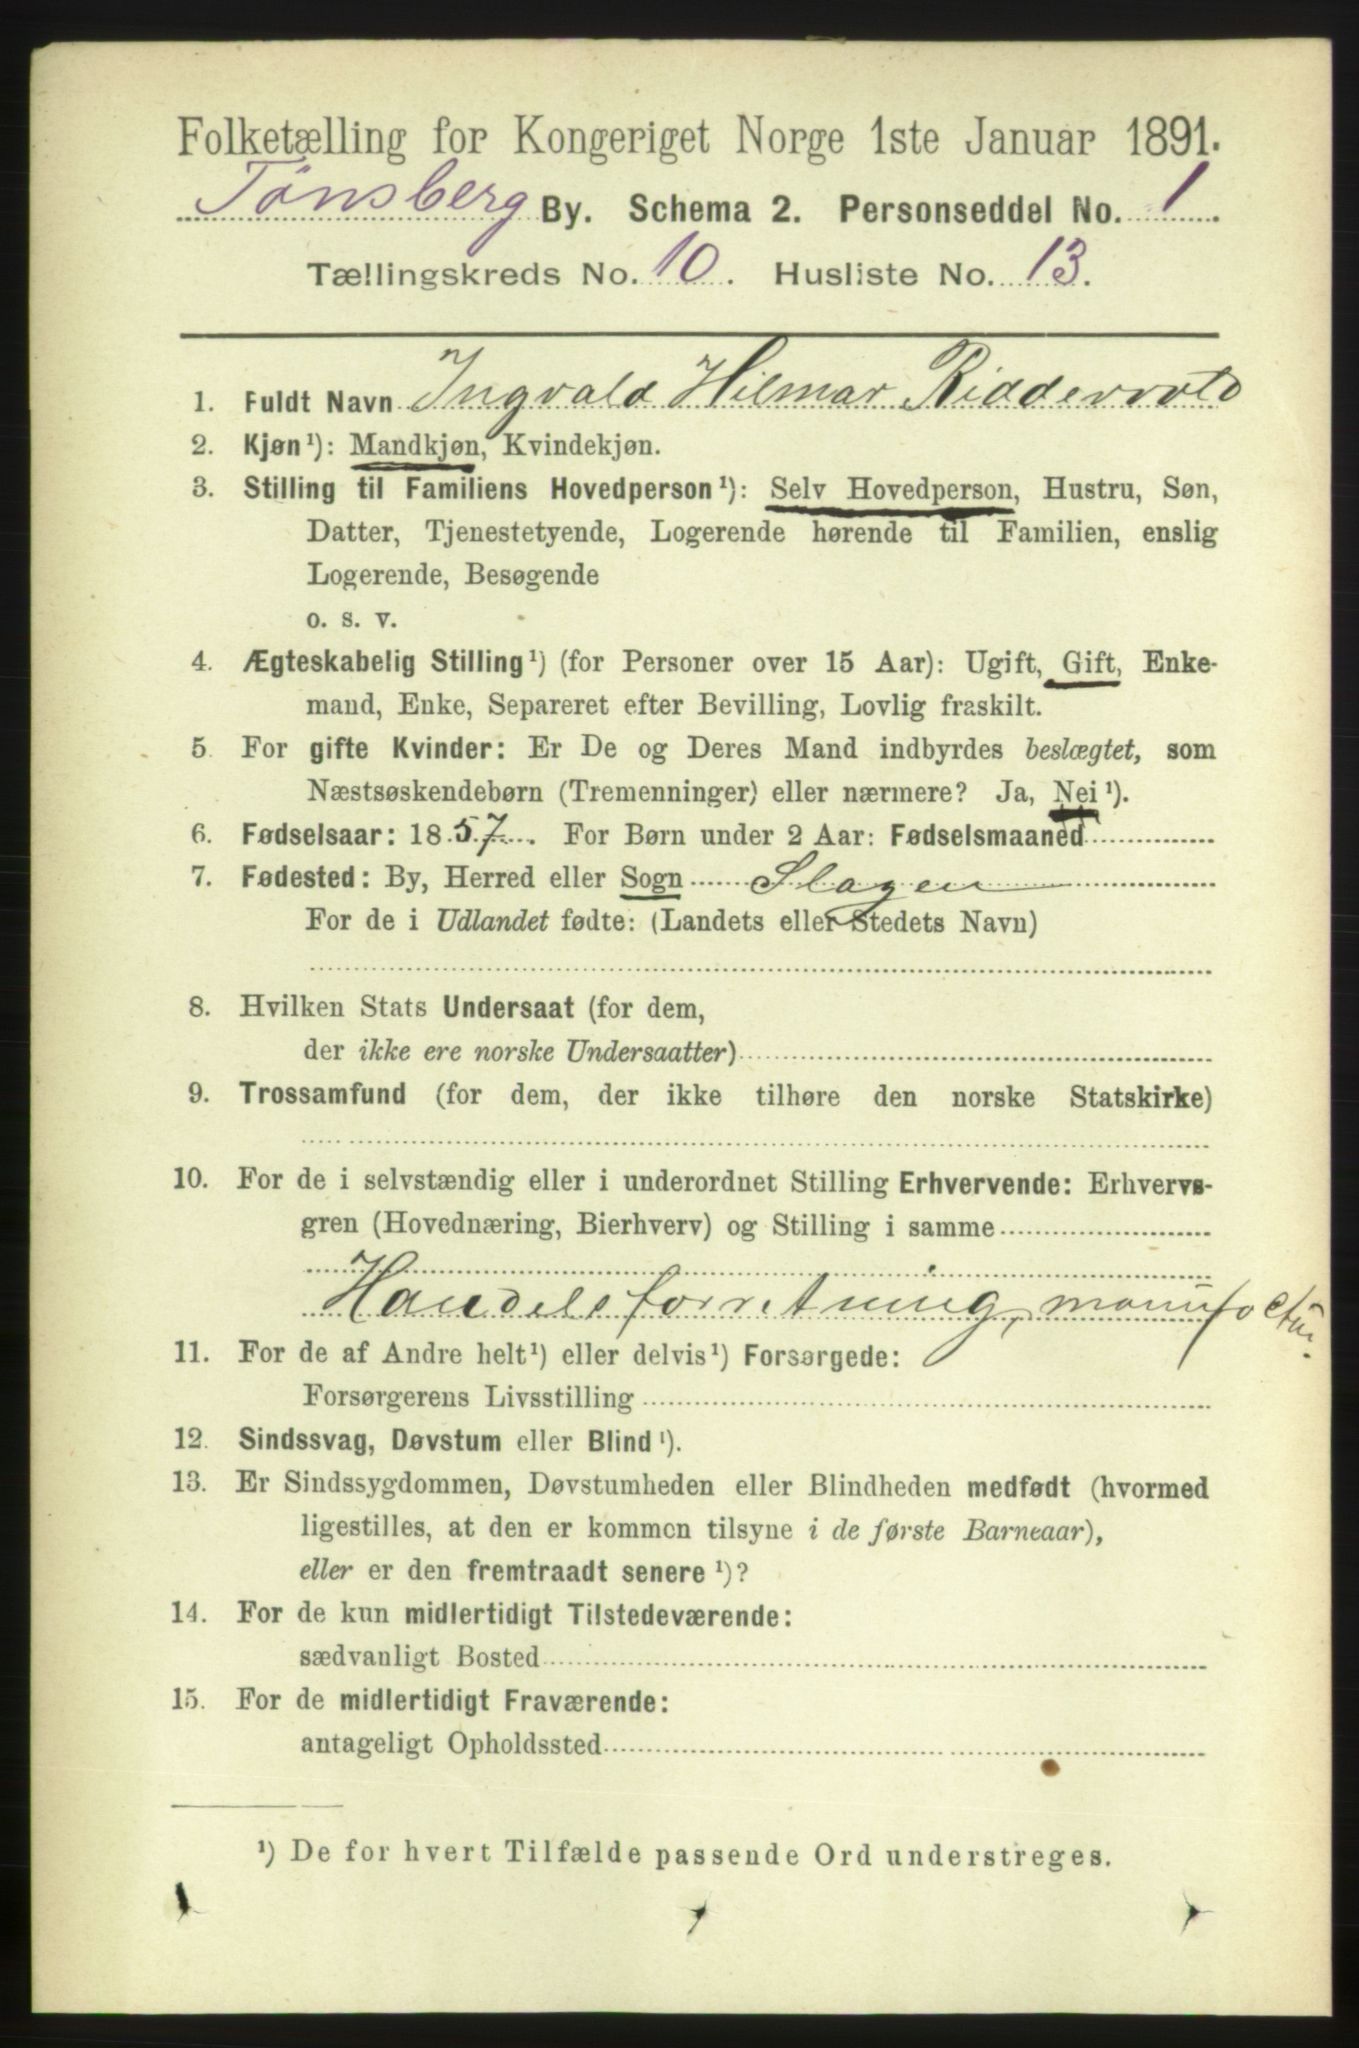 Folketælling for Kongeriget Norge 1ste Januar 1891.
Tønsberg By. Schema 2. Personseddel No. 1.
Tællingskreds No. 10. Husliste No. 13.
1. Fuldt Navn Ingvald Hilmar Riddervold
2. Kjøn¹): Mandkjøn, Kvindekjøn.
3. Stilling til Familiens Hovedperson¹): Selv Hovedperson, Hustru, Søn,
Datter, Tjenestetyende, Logerende hørende til Familien, enslig
Logerende, Besøgende
o. s. v.
4. Ægteskabelig Stilling¹) (for Personer over 15 Aar): Ugift, Gift, Enke-
mand, Enke, Separeret efter Bevilling, Lovlig fraskilt.
5. For gifte Kvinder: Er De og Deres Mand indbyrdes beslægtet, som
Næstsøskendebørn (Tremenninger) eller nærmere? Ja, Nei¹).
6. Fødselsaar: 1857. For Børn under 2 Aar: Fødselsmaaned
7. Fødested: By, Herred eller Sogn Slagen
For de i Udlandet fødte: (Landets eller Stedets Navn)
8. Hvilken Stats Undersaat (for dem,
der ikke ere norske Undersaatter)
9. Trossamfund (for dem, der ikke tilhøre den norske Statskirke)
10. For de i selvstændig eller i underordnet Stilling Erhvervende: Erhvervs-
gren (Hovednæring, Bierhverv) og Stilling i samme
Handelsforretning, manufactur.
11. For de af Andre helt¹) eller delvis¹) Forsørgede:
Forsørgerens Livsstilling
12. Sindssvag, Døvstum eller Blind¹).
13. Er Sindssygdommen, Døvstumheden eller Blindheden medfødt (hvormed
ligestilles, at den er kommen tilsyne i de første Barneaar),
eller er den fremtraadt senere¹)?
14. For de kun midlertidigt Tilstedeværende:
sædvanligt Bosted
15. For de midlertidigt Fraværende:
antageligt Opholdssted
¹) De for hvert Tilfælde passende Ord understreges.